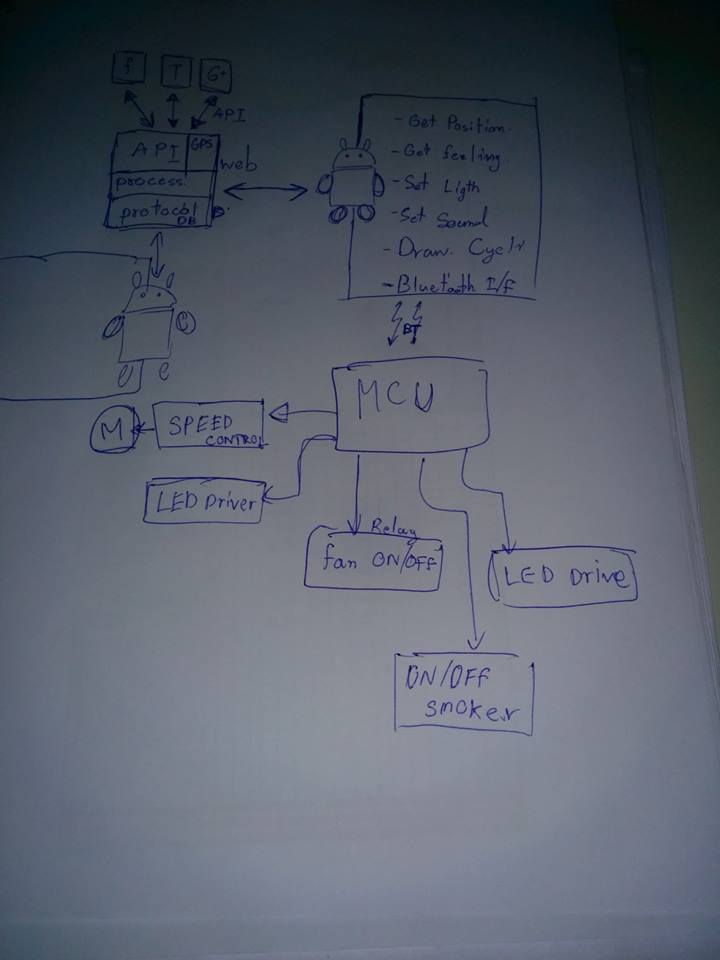 f T G+
API
API GPS
web
process
protocol
DB
- Get Position
- Get feeling
- Set Ligth
- Set Sound
- Draw
- Bluetooth I/f
BT
MCU
M
SPEED
CONTROL
LED Driver
Relay
fan ON/OFF
LED Drive
ON/OFF
smoker